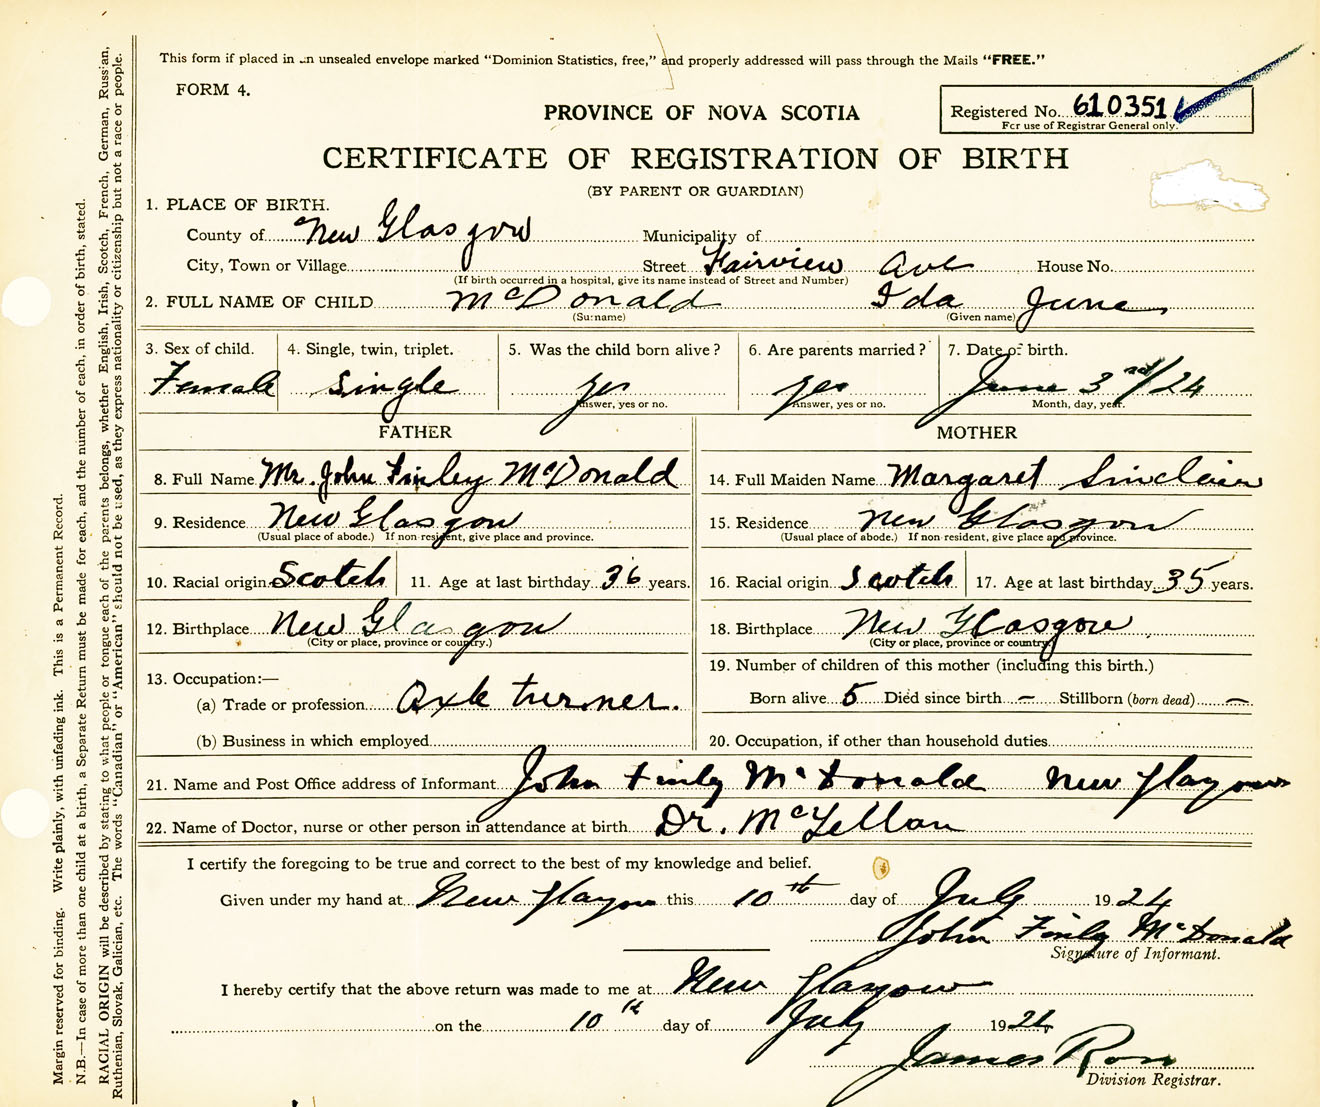 This form if placed in an unsealed envelope marked "Dominion Statistics, free," and properly addressed will pass through the Mails "FREE."
FORM 4.
PROVINCE OF NOVA SCOTIA
Registered No. 610351
For use of Registrar General only.
CERTIFICATE OF REGISTRATION OF BIRTH
(BY PARENT OR GUARDIAN)
1. PLACE OF BIRTH.
County of New Glasgow Municipality of
City, Town or Village Street Fairview Ave House No.
(If birth occurred in a hospital, give its name instead of Street and Number)
2. FULL NAME OF CHILD McDonald Ida June
(Surname) (Given name)
3. Sex of child. 4. Single, twin, triplet. 5. Was the child born alive? 6. Are parents married? 7. Date of birth.
Female single yes yes June 3rd/24
Answer, yes or no. Answer, yes or no. Month, day, year.
FATHER MOTHER
8. Full Name Mr. John Finley McDonald 14. Full Maiden Name Margaret Sinclair
9. Residence New Glasgow 15. Residence New Glasgow
(Usual place of abode.) If non-resident, give place and province. (Usual place of abode.) If non-resident, give place and province.
10. Racial origin Scotch 11. Age at last birthday 36 years. 16. Racial origin Scotch 17. Age at last birthday 35 years.
12. Birthplace New Glasgow 18. Birthplace New Glasgow
(City or place, province or country.) (City or place, province or country)
13. Occupation:— 19. Number of children of this mother (including this birth.)
(a) Trade or profession Axle turner. Born alive 5 Died since birth – Stillborn (born dead) –
(b) Business in which employed 20. Occupation, if other than household duties
21. Name and Post Office address of Informant John Finly McDonald New Glasgow
22. Name of Doctor, nurse or other person in attendance at birth Dr. McLellan
I certify the foregoing to be true and correct to the best of my knowledge and belief.
Given under my hand at New Glasgow this 10th day of July 1924
John Finly McDonald
Signature of Informant.
I hereby certify that the above return was made to me at New Glasgow
on the 10th day of July 1924
James Ross
Division Registrar.
Margin reserved for binding. Write plainly, with unfading ink. This is a Permanent Record.
N.B.—In case of more than one child at a birth, a Separate Return must be made for each, and the number of each, in order of birth, stated.
RACIAL ORIGIN will be described by stating to what people or tongue each of the parents belongs, whether English, Irish, Scotch, French, German, Russian,
Ruthenian, Slovak, Galician, etc. The words "Canadian" or "American" should not be used, as they express nationality or citizenship but not a race or people.